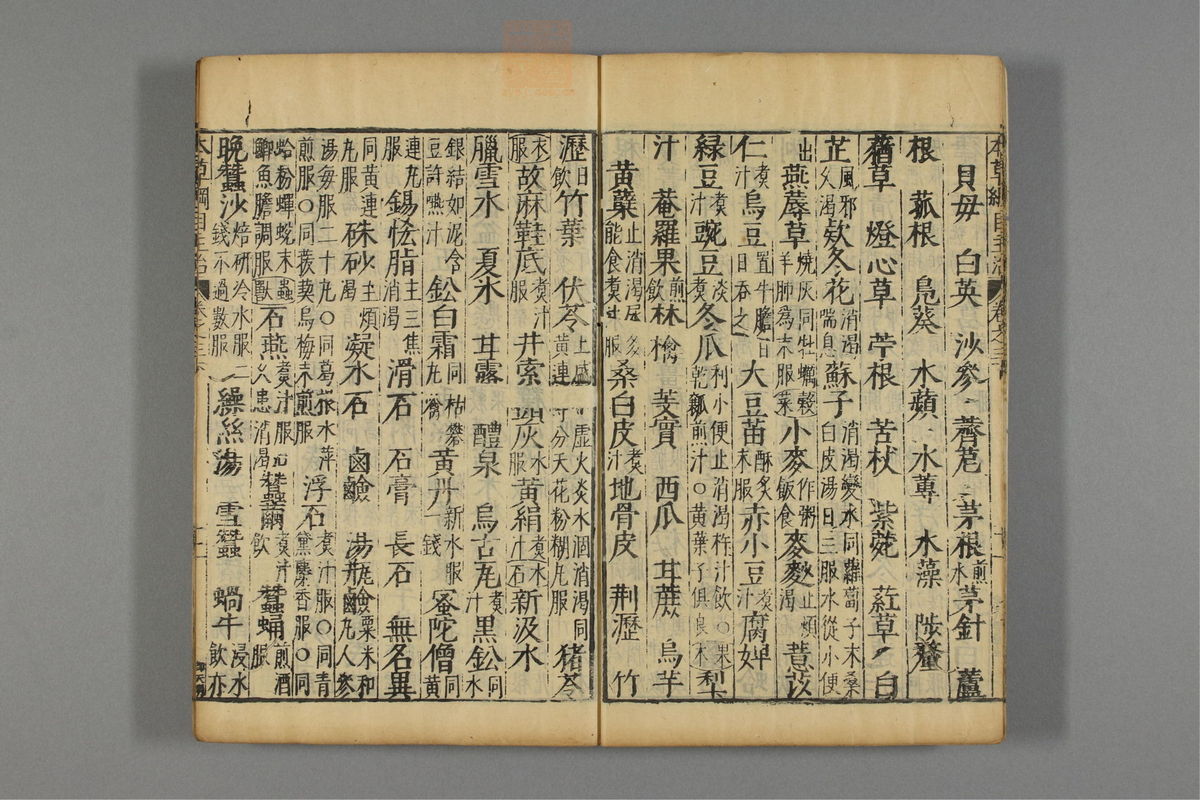 貝母 白英 沙參 薺苨 茅根煎水茅針 蘆
根 菰根 鳬葵 水蘋 水蓴 水藻 陟釐
藺草 燈心草 苧根 苦杖 紫菀 葒草 白
芷風邪久渴款冬花消渴喘息蘇子消渴變水同蘿蔔子末桑白皮湯日三服水從小便
出燕蓐草燒灰同牡蠣羊肺為末服菜小麥作粥飯食麥麩止煩渴薏苡
仁煮汁烏豆置牛膽百日吞之大豆苗酥炙末服赤小豆煮汁腐婢
綠豆煮汁豌豆淡煮冬瓜利小便止消渴杵汁飲○乾瓤煎汁○黃葉子俱良果木梨
汁 菴羅果煎飲林檎 芰實 西瓜 甘蔗 烏芋
黃蘗止消渴尿多能食煮汁服桑白皮煮汁地骨皮 荆瀝 竹
瀝日飲竹葉 茯苓上盛下虛火炎水涸消渴同黃連等分天花粉糊丸服 猪苓
衣服故麻鞋底煮汁服井索頭灰水服黃絹煮汁水石新汲水
臘雪水 夏氷 甘露 醴泉 烏古瓦煮汁黑鉛同水
銀結如泥含豆許嚥汁鉛白霜同枯礬丸噙黃丹新水服一錢蜜陀僧同黃
連丸服錫恡脂主三焦消渴滑石 石膏 長石 無名異
同黃連丸服硃砂主煩渴凝水石 鹵鹼 湯瓶鹼粟米和丸人參
湯每服二十丸○同葛根水萍煎服○同菝葜烏梅末煎服浮石煮汁服○同青黛麝香服○同
蛤粉蟬蛻末鯽魚膽調服蟲獸石燕煮汁服久患消渴蠶繭煮汁飲蠶蛹煎酒服
晚蠶沙焙研冷水服二錢不過數服繰絲湯 雪蠶 蝸牛浸水飲亦